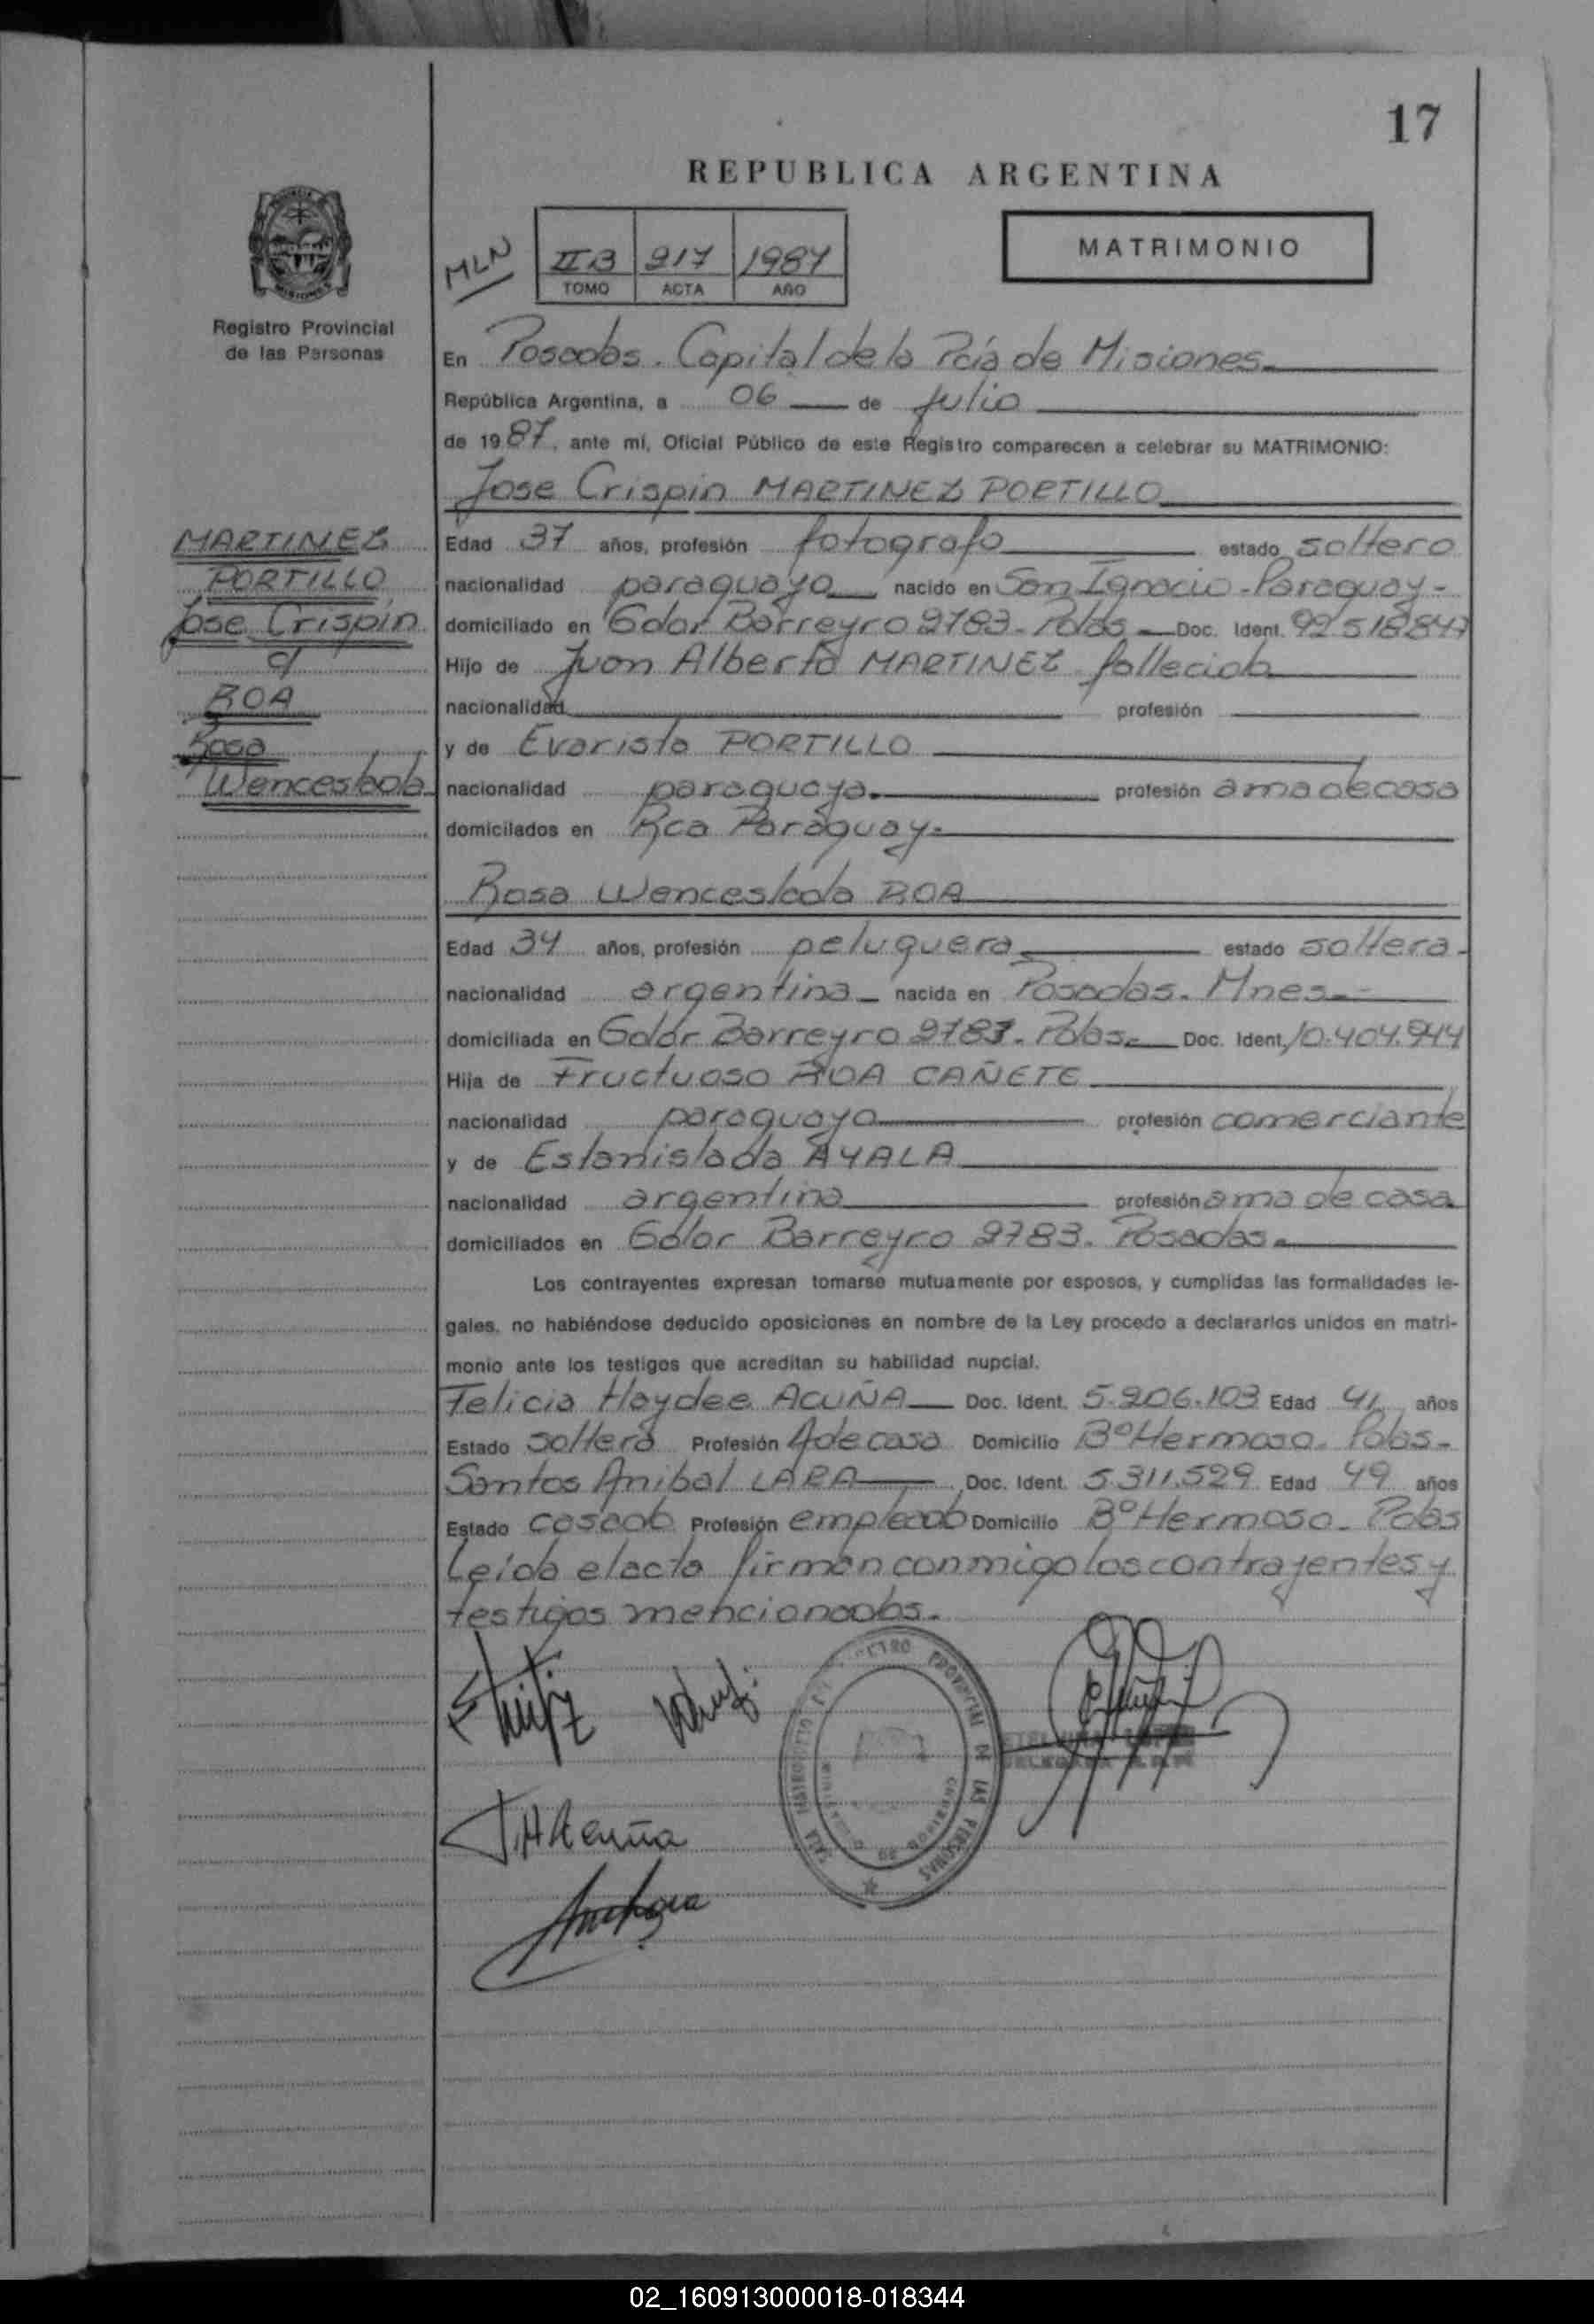 17
REPUBLICA ARGENTINA
MLN
IIB 917 1987
TOMO ACTA AÑO
MATRIMONIO
Registro Provincial
de las Personas
MARTINEZ
PORTILLO
Jose Crispin
c/
ROA
Rosa
Wenceslada
En Posadas. Capital de la Pcia de Misiones
República Argentina, a 06 de Julio
de 1987, ante mí, Oficial Público de este Registro comparecen a celebrar su MATRIMONIO:
Jose Crispin MARTINEZ PORTILLO
Edad 37 años, profesión fotografo estado soltero
nacionalidad paraguaya nacido en San Ignacio - Paraguay -
domiciliado en Gdor Barreyro 2783 - Pdas Doc. Ident. 92518847
Hijo de Juan Alberto MARTINEZ fallecido
nacionalidad profesión
y de Evarista PORTILLO
nacionalidad paraguaya. profesión ama de casa
domiciliados en Rca Paraguay.
Rosa Wenceslada ROA
Edad 34 años, profesión peluquera estado soltera -
nacionalidad argentina nacida en Posadas. Mnes.
domiciliada en Gdor Barreyro 2783. Pdas. Doc. Ident. 10.404.944
Hija de Fructuoso ROA CAÑETE
nacionalidad paraguaya profesión comerciante
y de Estanislada AYALA
nacionalidad argentina profesión ama de casa
domiciliados en Gdor Barreyro 2783. Posadas.
Los contrayentes expresan tomarse mutuamente por esposos, y cumplidas las formalidades le-
gales, no habiéndose deducido oposiciones en nombre de la Ley procedo a declararlos unidos en matri-
monio ante los testigos que acreditan su habilidad nupcial.
Felicia Haydee ACUÑA Doc. Ident. 5.906.103 Edad 41 años
Estado soltera Profesión A de casa Domicilio Bº Hermoso. Pdas -
Santos Anibal LARA Doc. Ident. 5.311.529 Edad 49 años
Estado casado Profesión empleado Domicilio Bº Hermoso - Pdas
Leida el acta firman conmigo los contrayentes y
testigos mencionados.
PROVINCIAL DE LAS PERSONAS
F.H Acuña
02_160913000018-018344